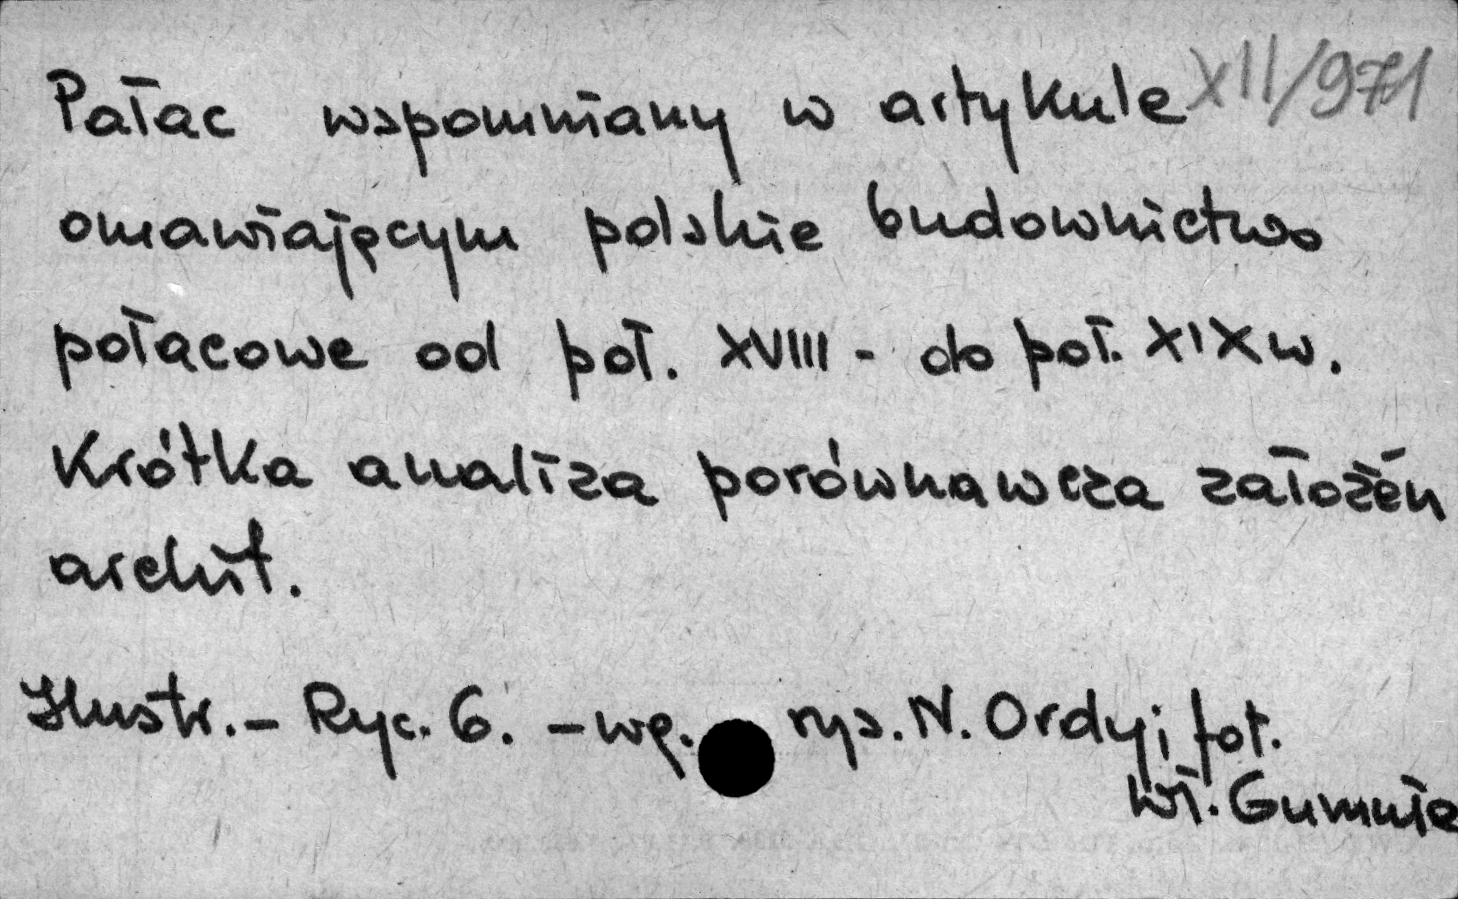 Pałac wspomniany w artykule XII/971
omawiającym polskie budownictwo
pałacowe od poł. XVIII - do poł. XIX w.
Krótka analiza porównawcza założeń
archit.
Ilustr. - Ryc. 6. - wg. rys. N. Ordy; fot.
Wł. Gumuła